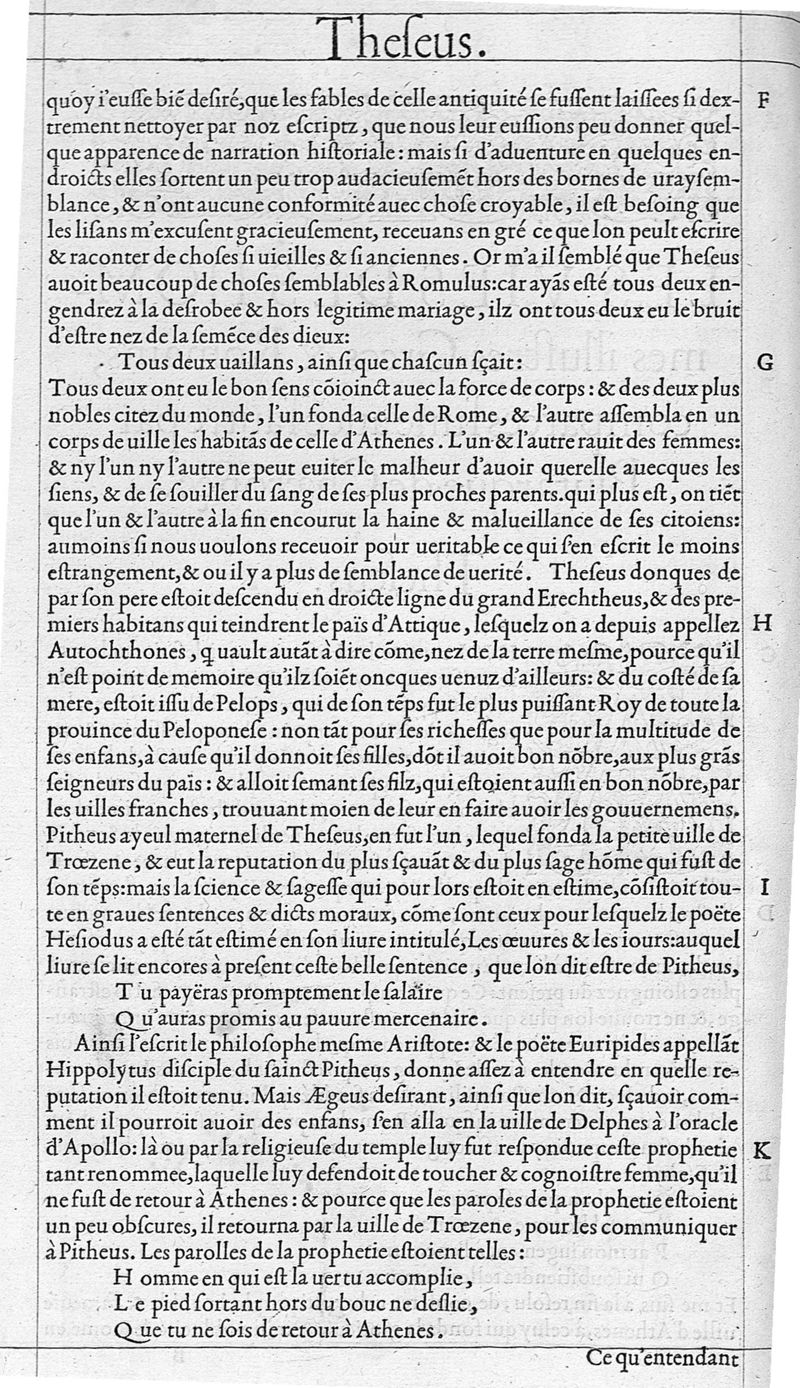 Theſeus.
quoy i'euſſe biẽ deſiré,que les fables de celle antiquité ſe fuſſent laiſſees ſi dex- F
trement nettoyer par noz eſcriptz, que nous leur euſſions peu donner quel-
que apparence de narration hiſtoriale: mais ſi d'aduenture en quelques en-
droicts elles ſortent un peu trop audacieuſemẽt hors des bornes de urayſem-
blance, & n'ont aucune conformité auec choſe croyable, il eſt beſoing que
les liſans m'excuſent gracieuſement, receuans en gré ce que lon peult eſcrire
& raconter de choſes ſi uieilles & ſi anciennes. Or m'a il ſemblé que Theſeus
auoit beaucoup de choſes ſemblables à Romulus:car ayãs eſté tous deux en-
gendrez à la deſrobee & hors legitime mariage, ilz ont tous deux eu le bruit
d'eſtre nez de la ſemẽce des dieux:
Tous deux uaillans, ainſi que chaſcun ſçait: G
Tous deux ont eu le bon ſens cõioinct auec la force de corps: & des deux plus
nobles citez du monde, l'un fonda celle de Rome, & l'autre aſſembla en un
corps de uille les habitãs de celle d'Athenes. L'un & l'autre rauit des femmes:
& ny l'un ny l'autre ne peut euiter le malheur d'auoir querelle auecques les
ſiens, & de ſe ſouiller du ſang de ſes plus proches parents.qui plus eſt, on tiẽt
que l'un & l'autre à la fin encourut la haine & malueillance de ſes citoiens:
aumoins ſi nous uoulons receuoir pour ueritable ce qui ſ'en eſcrit le moins
eſtrangement,& ou il y a plus de ſemblance de uerité. Theſeus donques de
par ſon pere eſtoit deſcendu en droicte ligne du grand Erechtheus,& des pre-
miers habitans qui teindrent le païs d'Attique, leſquelz on a depuis appellez H
Autochthones, q̃ uault autãt à dire cõme,nez de la terre meſme,pource qu'il
n'eſt point de memoire qu'ilz ſoiẽt oncques uenuz d'ailleurs: & du coſté de ſa
mere, eſtoit iſſu de Pelops, qui de ſon tẽps fut le plus puiſſant Roy de toute la
prouince du Peloponeſe: non tãt pour ſes richeſſes que pour la multitude de
ſes enfans,à cauſe qu'il donnoit ſes filles,dõt il auoit bon nõbre,aux plus grãs
ſeigneurs du païs: & alloit ſemant ſes filz,qui eſtoient auſſi en bon nõbre,par
les uilles franches, trouuant moien de leur en faire auoir les gouuernemens.
Pitheus ayeul maternel de Theſeus,en fut l'un, lequel fonda la petite uille de
Trœzene, & eut la reputation du plus ſçauãt & du plus ſage hõme qui fuſt de
ſon tẽps:mais la ſcience & ſageſſe qui pour lors eſtoit en eſtime,cõſiſtoit tou- I
te en graues ſentences & dicts moraux, cõme ſont ceux pour leſquelz le poëte
Heſiodus a eſté tãt eſtimé en ſon liure intitulé,Les œuures & les iours:auquel
liure ſe lit encores à preſent ceſte belle ſentence, que lon dit eſtre de Pitheus,
Tu payëras promptement le ſalaire
Qu'auras promis au pauure mercenaire.
Ainſi l'eſcrit le philoſophe meſme Ariſtote: & le poëte Euripides appellãt
Hippolytus diſciple du ſainct Pitheus, donne aſſez à entendre en quelle re-
putation il eſtoit tenu. Mais Ægeus deſirant, ainſi que lon dit, ſçauoir com-
ment il pourroit auoir des enfans, ſ'en alla en la uille de Delphes à l'oracle
d'Apollo: là ou par la religieuſe du temple luy fut reſpondue ceſte prophetie K
tant renommee,laquelle luy defendoit de toucher & cognoiſtre femme,qu'il
ne fuſt de retour à Athenes: & pource que les paroles de la prophetie eſtoient
un peu obſcures, il retourna par la uille de Trœzene, pour les communiquer
à Pitheus. Les parolles de la prophetie eſtoient telles:
Homme en qui eſt la uertu accomplie,
Le pied ſortant hors du bouc ne deſlie,
Que tu ne ſois de retour à Athenes.
Ce qu'entendant